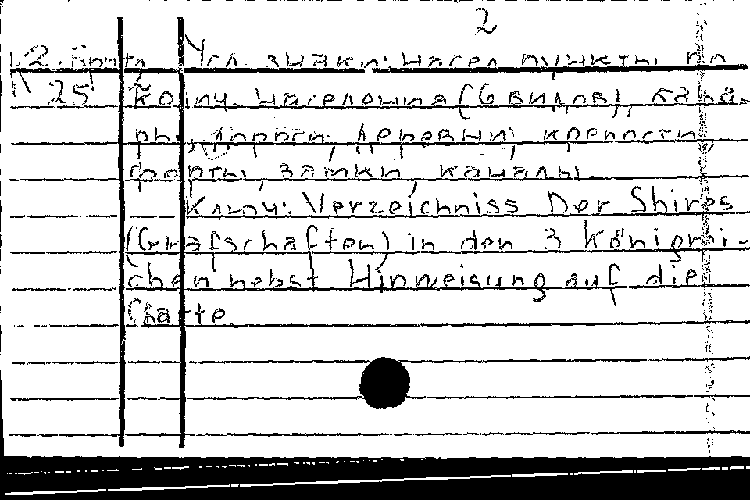 2
К2-Брит. Усл. знаки: насел. пункты по
25 колич. населения (6 видов), гава-
ры, дороги, деревни, крепости,
форты, замки, каналы.
Ключ: Verzeichniss Der Shires
(Grafschaften) in den 3 Königrei-
chen nebst Hinweisung auf die
Charte